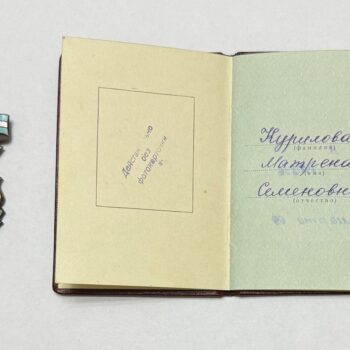 Действительно
без
фотокарточки
Курилова
(фамилия)
Матрена
(имя)
Семеновн
(отчество)